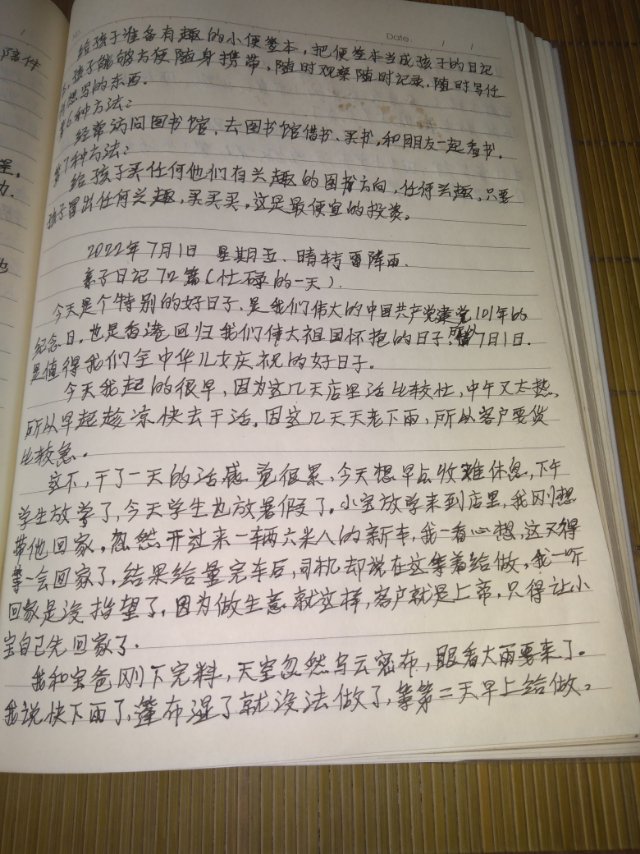 陪伴
Date: / /
给孩子准备有趣的小便签本，把便签本当成孩子的日记
孩子能够方便随身携带，随时观察随时记录，随时写任
想写的东西.
第6种方法：
经常访问图书馆，去图书馆借书、买书，和朋友一起看书.
第7种方法：
给孩子买任何他们有兴趣的图书方向，任何兴趣，只要
孩子冒出任何兴趣，买买买。这是最便宜的投资。
2022年7月1日 星期五 晴转雷阵雨.
亲子日记72篇（忙碌的一天）.
今天是个特别的好日子，是我们伟大的中国共产党建党101年的
纪念日，也是香港回归我们伟大祖国怀抱的日子，7月1日.
是值得我们全中华儿女庆祝的好日子.
今天我起的很早，因为这几天店里活比较忙，中午又太热，
所以早起趁凉快去干活。因这几天天老下雨，所以客户要货
比较急。
这不，干了一天的活感觉很累，今天想早点收摊休息，下午
学生放学了，今天学生也放暑假了。小宝放学来到店里，我刚想
带他回家。忽然开过来一辆六米八的新车，我一看心想，这又得
等一会回家了，结果给量完车后，司机却说在这等着给做，我一听
回家是没指望了，因为做生意就这样，客户就是上帝，只得让小
宝自己先回家了.
我和宝爸刚下完料，天空忽然乌云密布，眼看大雨要来了。
我说快下雨了，篷布湿了就没法做了，等第二天早上给做。